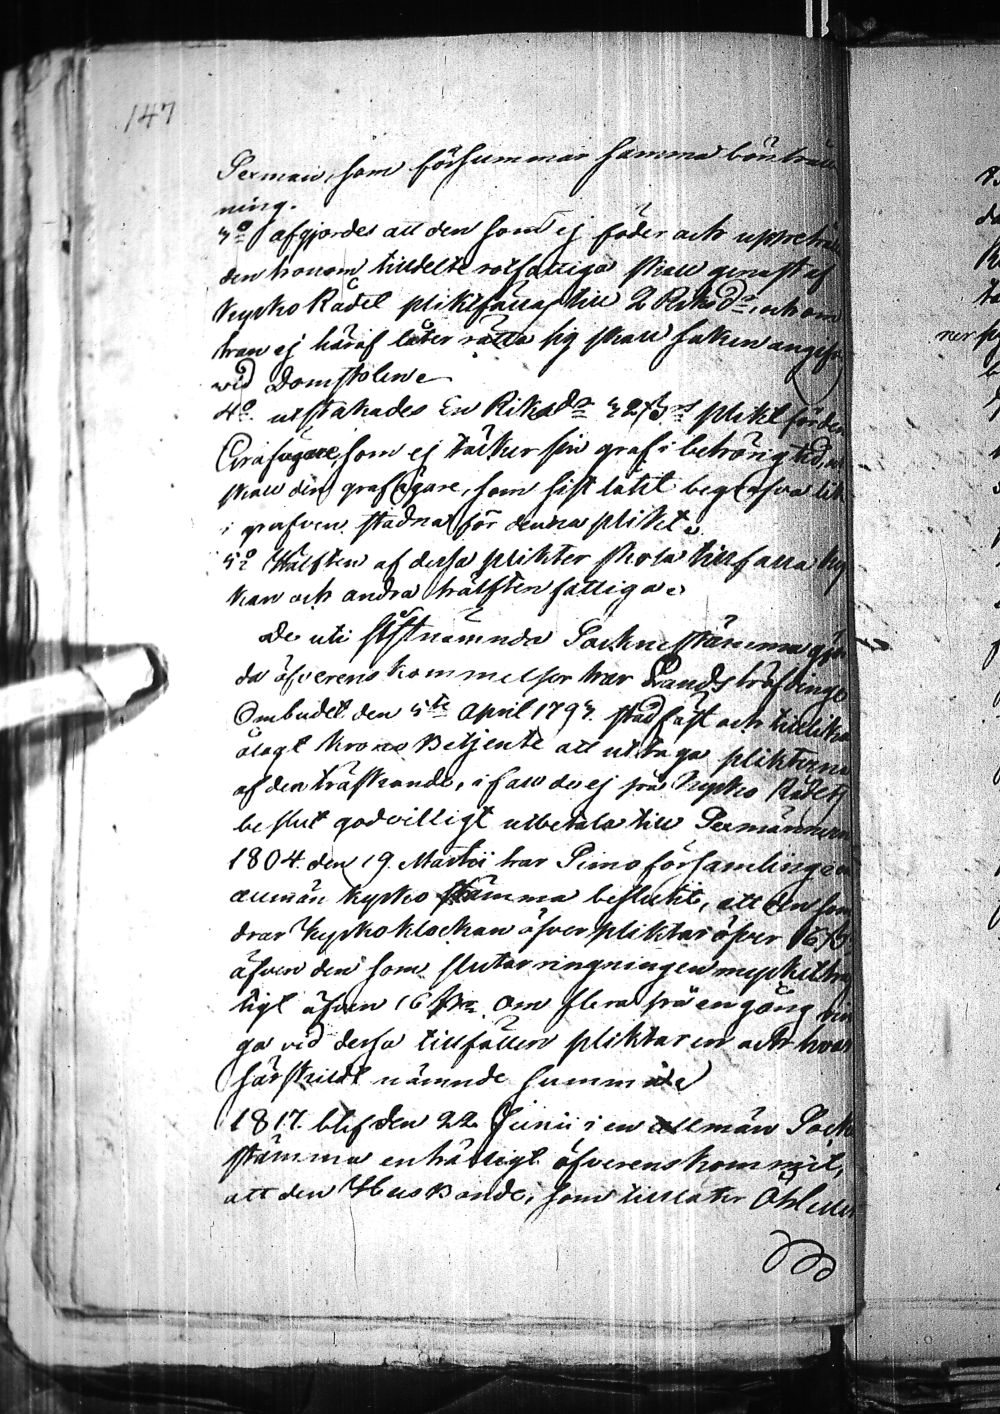 147
Sexman, som försummar samma bönträn
ning.
3o afgjordes att den som ej föder och
den honom tilldelte rotfattiga skall genast af
Kyrko Rådet pliktfällas till 2 Riksdr, och om
han ej häraf låter rätta sig skall saken angifv
vid Domstolen.
4o utstakades En Riksdr 32 plikt för den
Grafägare, som ej täcker sin graf i behörig tid,
skall den grafägare, som sist låtit begrafva lik
i grafven stadna för denna plikt.
5o Hälften af dessa plikter skola tillfalla kyr
kan och andra hälften fattiga.
De uti sistnämnda Socknestämma gjor
da öfverenskommelser har Landshöfdinge
Ombudet den 5te April 1793. stadfäst och tillika
ålagt Krono Betjente att uttaga plikterna
af den träskande, i fall de ej på Kyrko Rådets
beslut godvilligt utbetala till Sexmännen
1804. den 19. Martii har Pimo församlingen
allmän kyrko stämma beslutit, att den som
drar kyrkoklockan öfver pliktar öfver 16
äfven den som slutar ringningen mycket
tigt äfven 16 Om flera på en gång rin
ga vid dessa tillfällen pliktar en och hvar
särskildt nämnde summa
1817. blef den 22 Junii i en allmän Sock
stämma enhälligt öfverenskommit,
att den Husbonde, som tillåter
ner